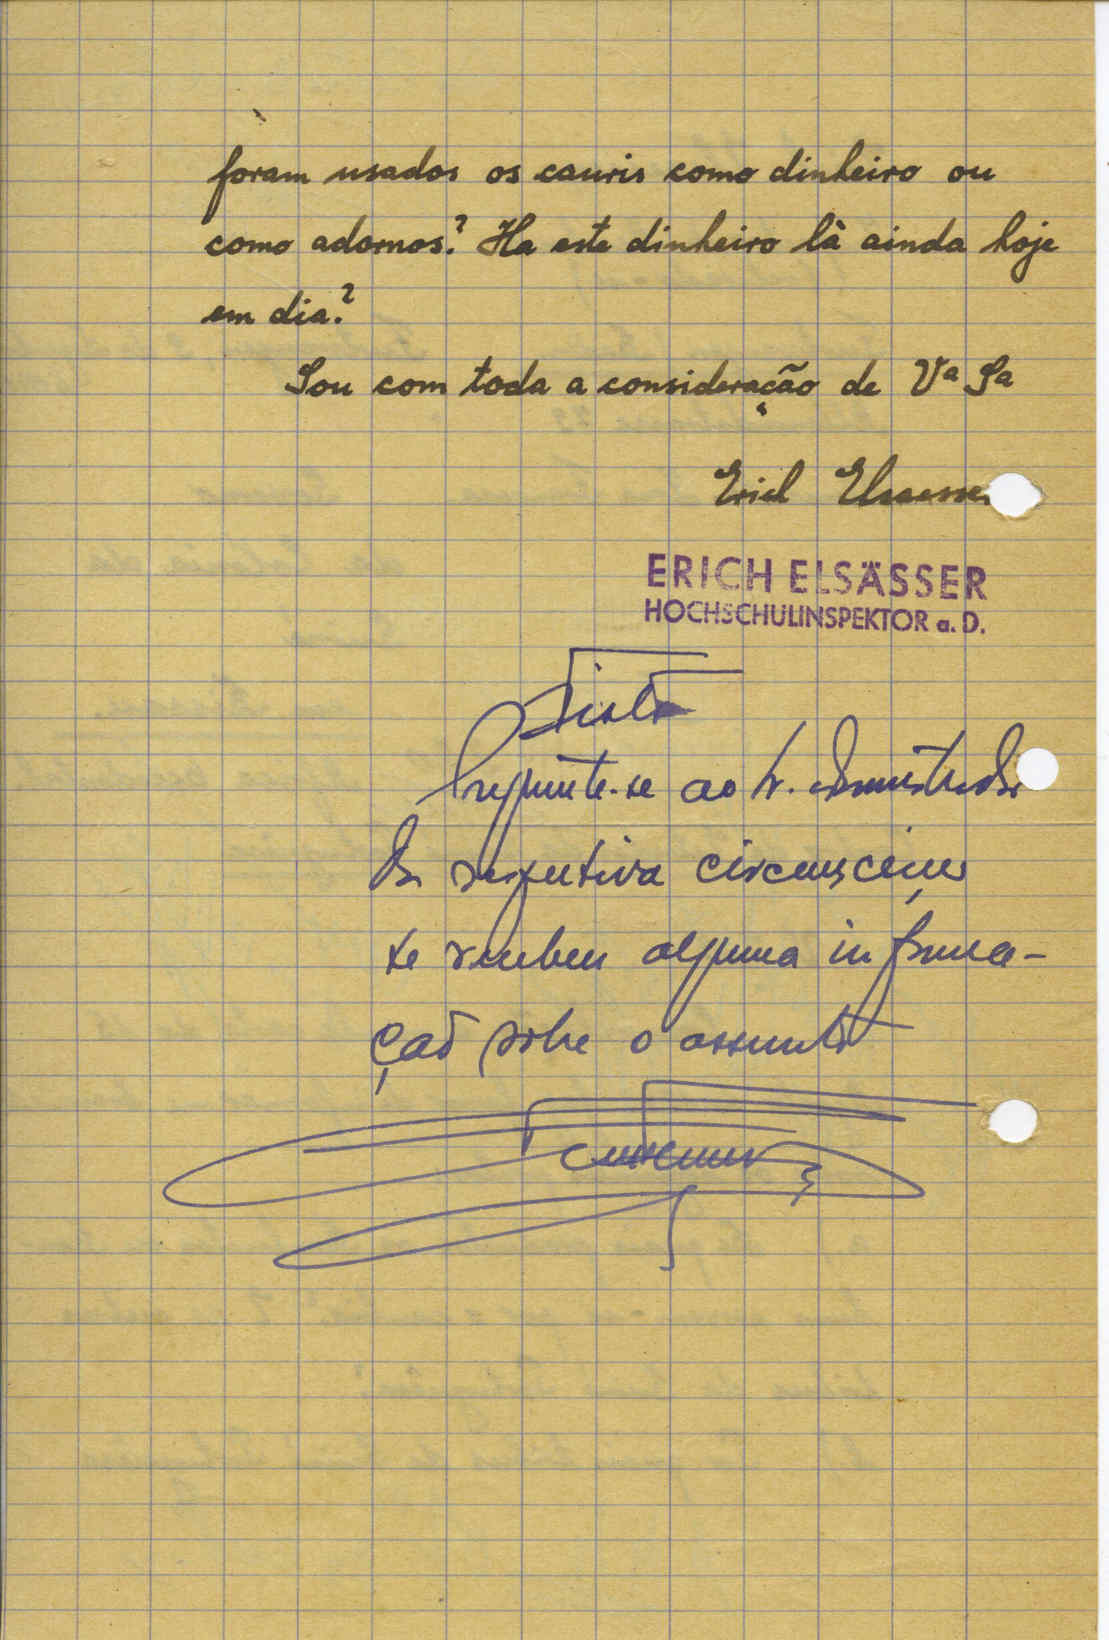 foram usados os cauris como dinheiro ou
como adornos? Ha este dinheiro là ainda hoje
em dia?
Sou com toda a consideração de Vª Sª
Erich Elsaesser
ERICH ELSÄSSER
HOCHSCHULINSPEKTOR a. D.
Pregunte-se ao Sr. Administrador
da respectiva circunscrição
se recebeu alguma informa-
ção sobre o assunto